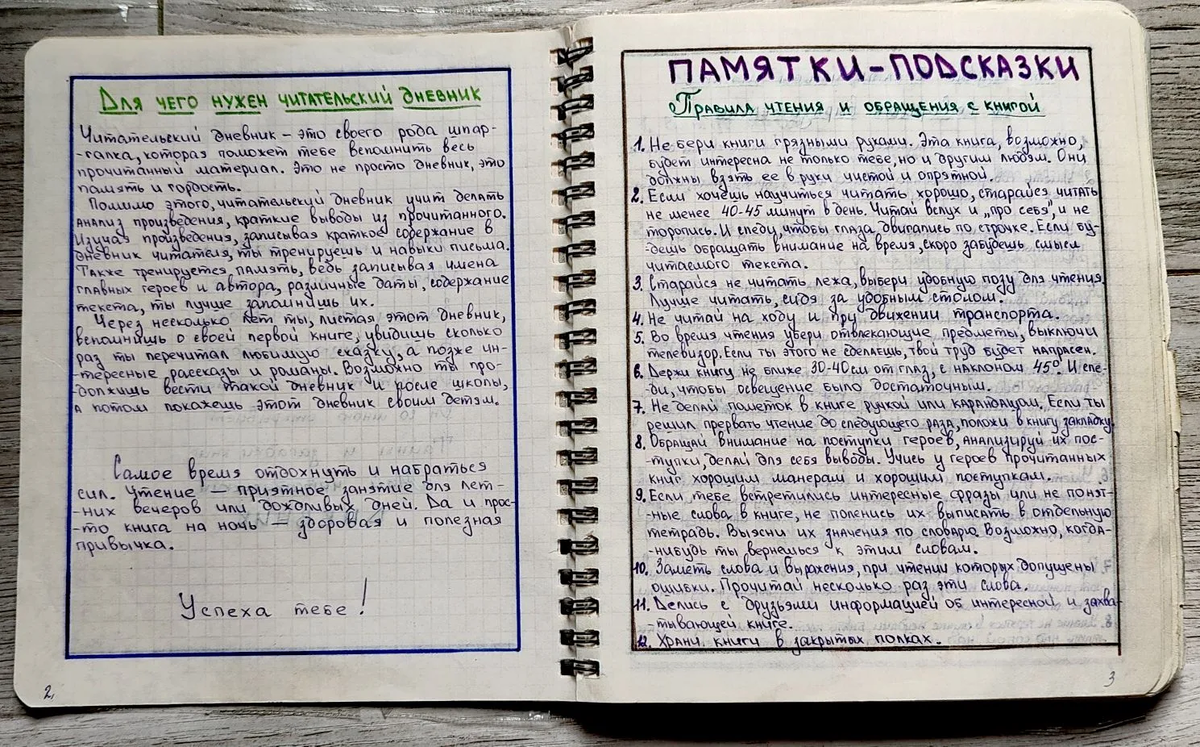 Для чего нужен читательский дневник
Читательский дневник – это своего рода шпар-
-галка, которая поможет тебе вспомнить весь
прочитанный материал. Это не просто дневник, это
память и гордость.
Помимо этого, читательский дневник учит делать
анализ произведения, краткие выводы из прочитанного.
Изучая произведения, записывая краткое содержание в
дневник читателя, ты тренируешь и навыки письма.
Также тренируется память, ведь записывая имена
главных героев и автора, различные даты, содержание
текста, ты лучше запомнишь их.
Через несколько лет ты, листая этот дневник,
вспомнишь о своей первой книге, увидишь сколько
раз ты перечитал любимую сказку, а позже ин-
-тересные рассказы и романы. Возможно ты про-
-должишь вести такой дневник и после школы,
а потом покажешь этот дневник своим детям.
Самое время отдохнуть и набраться
сил. Чтение — приятное занятие для лет-
-них вечеров или дождливых дней. Да и прос-
-то книга на ночь — здоровая и полезная
привычка.
Успеха тебе!
2.
ПАМЯТКИ-ПОДСКАЗКИ
Правила чтения и обращения с книгой
1. Не бери книги грязными руками. Эта книга, возможно,
будет интересна не только тебе, но и другим людям. Они
должны взять ее в руки чистой и опрятной.
2. Если хочешь научиться читать хорошо, старайся читать
не менее 40-45 минут в день. Читай вслух и „про себя", и не
торопись. И следи, чтобы глаза двигались по строчке. Если бу-
-дешь обращать внимание на время, скоро забудешь смысл
читаемого текста.
3. Старайся не читать лежа, выбери удобную позу для чтения.
Лучше читать, сидя за удобным столом.
4. Не читай на ходу и при движении транспорта.
5. Во время чтения убери отвлекающие предметы, выключи
телевизор. Если ты этого не сделаешь, твой труд будет напрасен.
6. Держи книгу не ближе 30-40 см от глаз, с наклоном 45°. И сле-
-ди, чтобы освещение было достаточным.
7. Не делай пометок в книге ручкой или карандашом. Если ты
решил прервать чтение до следующего раза, положи в книгу закладку.
8. Обращай внимание на поступки героев, анализируй их пос-
-тупки, делай для себя выводы. Учись у героев прочитанных
книг хорошим манерам и хорошим поступкам.
9. Если тебе встретились интересные фразы или не понят-
-ные слова в книге, не поленись их выписать в отдельную
тетрадь. Выясни их значения по словарю. Возможно, когда-
-нибудь ты вернешься к этим словам.
10. Заметь слова и выражения, при чтении которых допущены
ошибки. Прочитай несколько раз эти слова.
11. Делись с друзьями информацией об интересной и захва-
-тывающей книге.
12. Храни книги в закрытых полках.
3